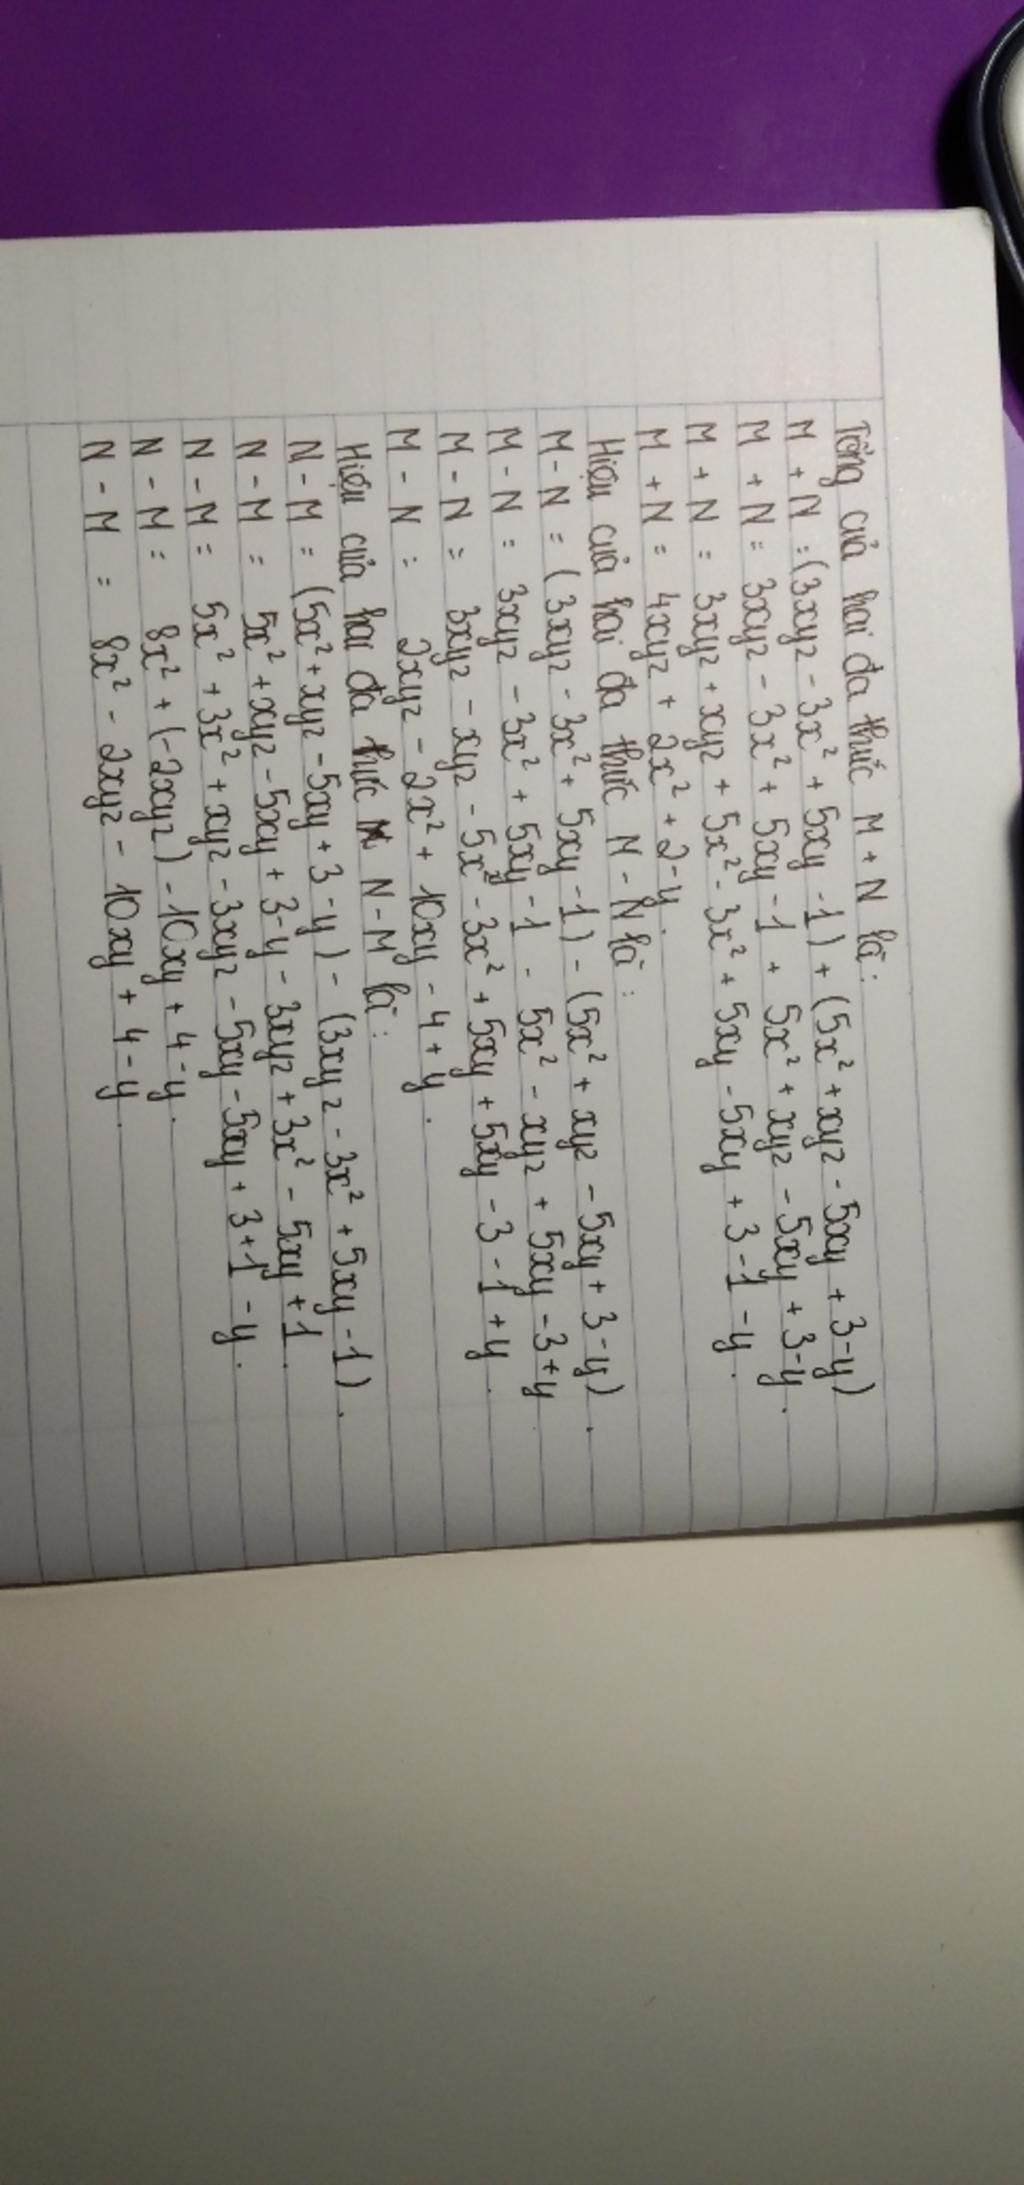 Tổng của hai đa thức M + N là:
M + N = (3xyz - 3x² + 5xy - 1) + (5x² + xyz - 5xy + 3 - y)
M + N = 3xyz - 3x² + 5xy - 1 + 5x² + xyz - 5xy + 3 - y.
M + N = 3xyz + xyz + 5x² - 3x² + 5xy - 5xy + 3 - 1 - y.
M + N = 4xyz + 2x² + 2 - y.
Hiệu của hai đa thức M - N là:
M - N = (3xyz - 3x² + 5xy - 1) - (5x² + xyz - 5xy + 3 - y).
M - N = 3xyz - 3x² + 5xy - 1 - 5x² - xyz + 5xy - 3 + y
M - N = 3xyz - xyz - 5x² - 3x² + 5xy + 5xy - 3 - 1 + y.
M - N = 2xyz - 2x² + 10xy - 4 + y.
Hiệu của hai đa thức N - M là:
N - M = (5x² + xyz - 5xy + 3 - y) - (3xyz - 3x² + 5xy - 1).
N - M = 5x² + xyz - 5xy + 3 - y - 3xyz + 3x² - 5xy + 1.
N - M = 5x² + 3x² + xyz - 3xyz - 5xy - 5xy + 3 + 1 - y.
N - M = 8x² + (-2xyz) - 10xy + 4 - y.
N - M = 8x² - 2xyz - 10xy + 4 - y.